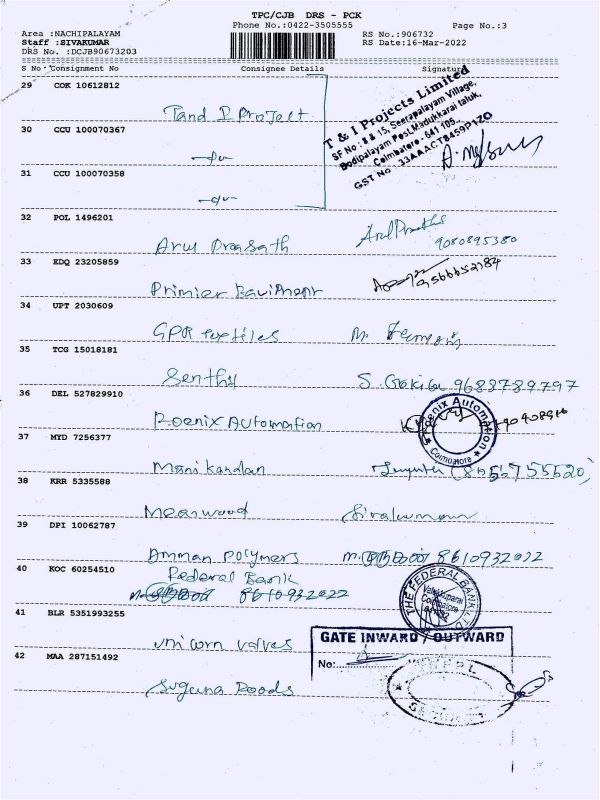 TPC/CJB DRS - PCK
Phone No.:0422-3505555 Page No.:3
Area :NACHIPALAYAM RS No.:906732
Staff :SIVAKUMAR RS Date:16-Mar-2022
DRS No. :DCJB90673203
S No Consignment No Consignee Details Signature
29 COK 10612812
Tand I Project
T & I Projects Limited
SF No: 8 & 15, Seerapalayam Village,
Bodipalayam Post, Madukkarai taluk,
Coimbatore - 641 105.
GST No: 33AAACT8459P1ZO
30 CCU 100070367
31 CCU 100070358
32 POL 1496201
Arul Prasath 9080895380
33 EDQ 23205859
34 UPT 2030609
GPR textiles
35 TCG 15018181
Senthil S. Gokila 9688789797
36 DEL 527829910
Roenix Automation
Phoenix Automation
Coimbatore
37 MYD 7256377
Manikandan
38 KRR 5335588
Mearwood Sivakumar
39 DPI 10062787
Amman Polymers 8610932022
40 KOC 60254510
Federal Bank
8610932022
THE FEDERAL BANK LTD
Coimbatore
41 BLR 5351993255
unicorn valves
GATE INWARD / OUTWARD
No:
42 MAA 287151492
Suguna Foods